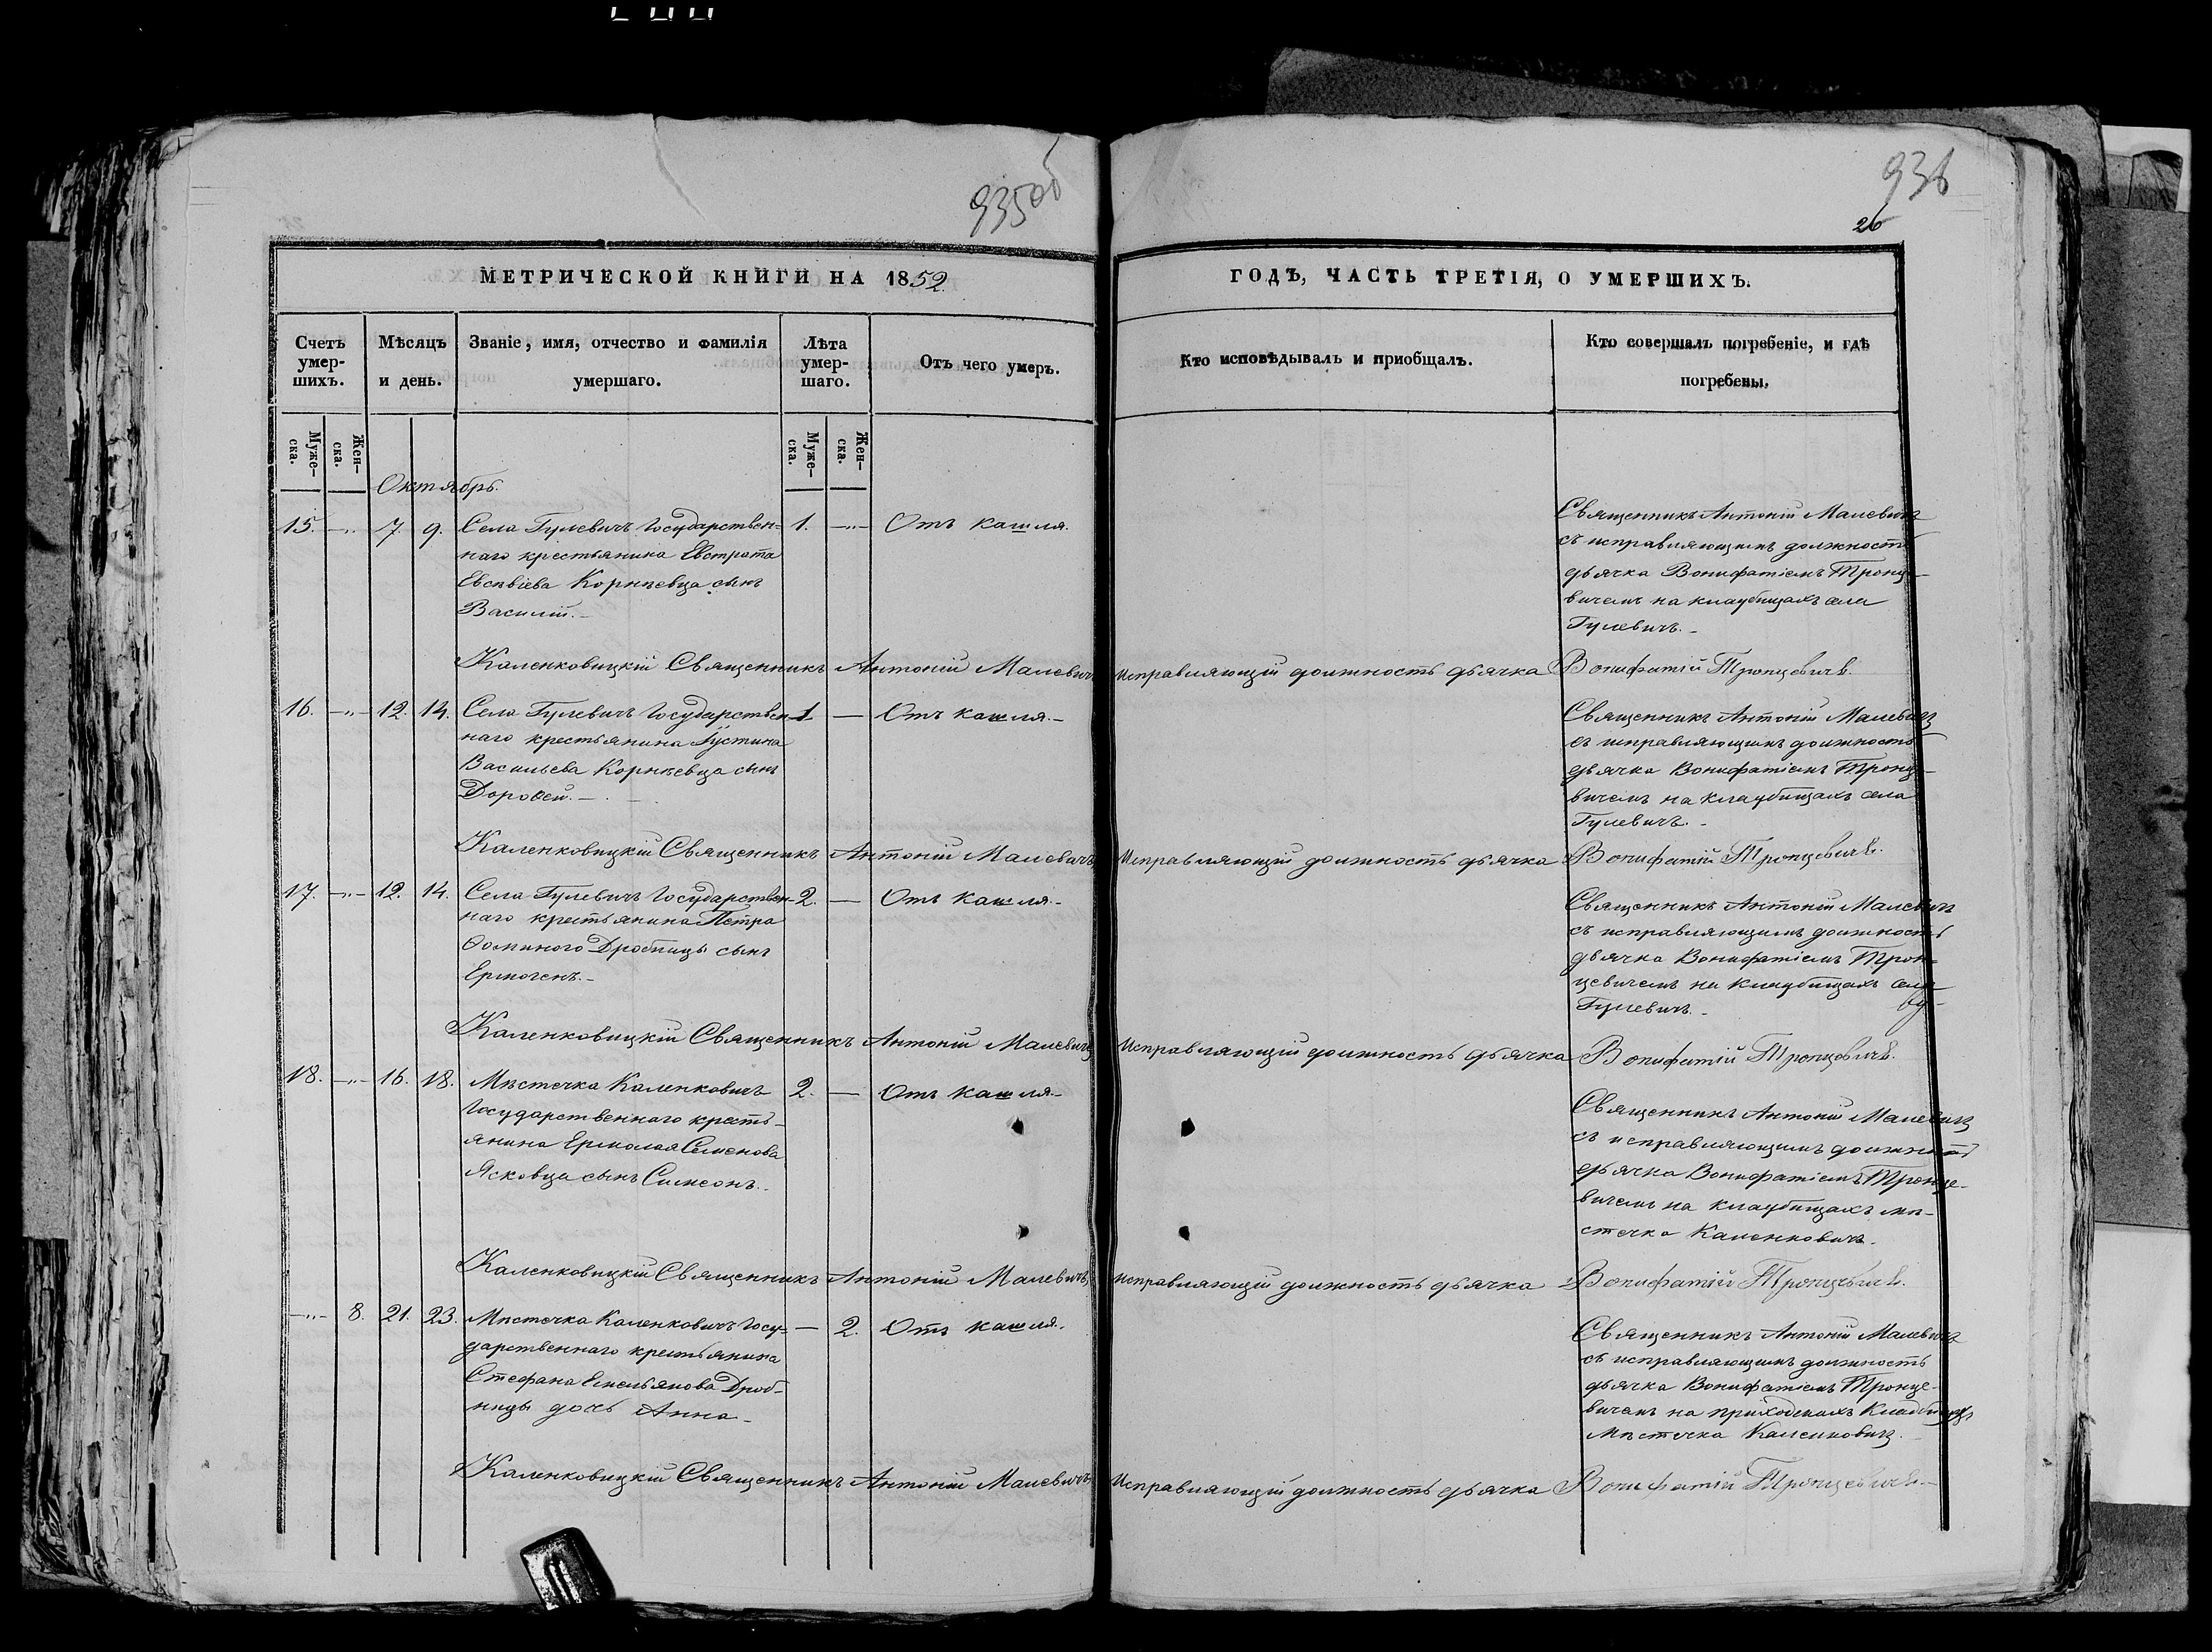 935 об
936
26
МЕТРИЧЕСКОЙ КНИГИ НА 1852.
ГОДЪ, ЧАСТЬ ТРЕТІЯ, О УМЕРШИХЪ.
Счетъ умер-шихъ.
Мѣсяцъ и день.
Званіе, имя, отчество и фамилія умершаго.
Лѣта умер-шаго.
Отъ чего умеръ.
Кто исповѣдывалъ и пріобщалъ.
Кто совершалъ погребеніе, и гдѣ погребены.
Муже-ска.
Жен-ска.
Муже-ска.
Жен-ска.
Октябрь.
15. -"- 7. 9. Села Гулевичъ Государствен= 1. -"- Отъ кашля.
наго крестьянина Евстрата
Евсѣвіева Корнѣевца сынъ
Василій.-
Священникъ Антоній Малевичъ
съ исправляющимъ должность
дьячка Вонифатіемъ Тронце-
вичемъ на кладбищахъ села
Гулевичъ.-
Каленковицкій Священникъ Антоній Малевичъ Исправляющій должность дьячка Вонифатій Тронцевичъ.
16. -"- 12. 14. Села Гулевичъ Государствен- 1 — Отъ кашля.-
наго крестьянина Іустина
Васильева Корнѣевца сынъ
Дороѳей.-
Священникъ Антоній Малевичъ
съ исправляющимъ должность
дьячка Вонифатіемъ Тронце-
вичемъ на кладбищахъ села
Гулевичъ.-
Каленковицкій Священникъ Антоній Малевичъ Исправляющій должность дьячка Вонифатій Тронцевичъ.
17. -"- 12. 14. Села Гулевичъ Государствен- 2. — Отъ кашля.-
наго крестьянина Петра
Ѳоминого Дробницы сынъ
Ермогенъ.-
Священникъ Антоній Малевичъ
съ исправляющимъ должность
дьячка Вонифатіемъ Трон-
цевичемъ на кладбищахъ села
Гулевичъ.-
Каленковицкій Священникъ Антоній Малевичъ Исправляющій должность дьячка Вонифатій Тронцевичъ.
18. -"- 16. 18. Мѣстечка Каленковичъ 2. — Отъ кашля.-
Государственнаго кресть-
янина Ермолая Семенова
Ясковца сынъ Симеонъ.
Священникъ Антоній Малевичъ
съ исправляющимъ должность
дьячка Вонифатіемъ Тронце-
вичемъ на кладбищахъ мѣ-
стечка Каленковичъ.
Каленковицкій Священникъ Антоній Малевичъ Исправляющій должность дьячка Вонифатій Тронцевичъ.
-"- 8. 21. 23. Мѣстечка Каленковичъ Госу- — 2. Отъ кашля.
дарственнаго крестьянина
Стефана Емельянова Дроб-
ницы дочь Анна-
Священникъ Антоній Малевичъ
съ исправляющимъ должность
дьячка Вонифатіемъ Тронце-
вичемъ на приходскихъ кладбищахъ
Мѣстечка Каленковичъ.
Каленковицкій Священникъ Антоній Малевичъ Исправляющій должность дьячка Вонифатій Тронцевичъ.-